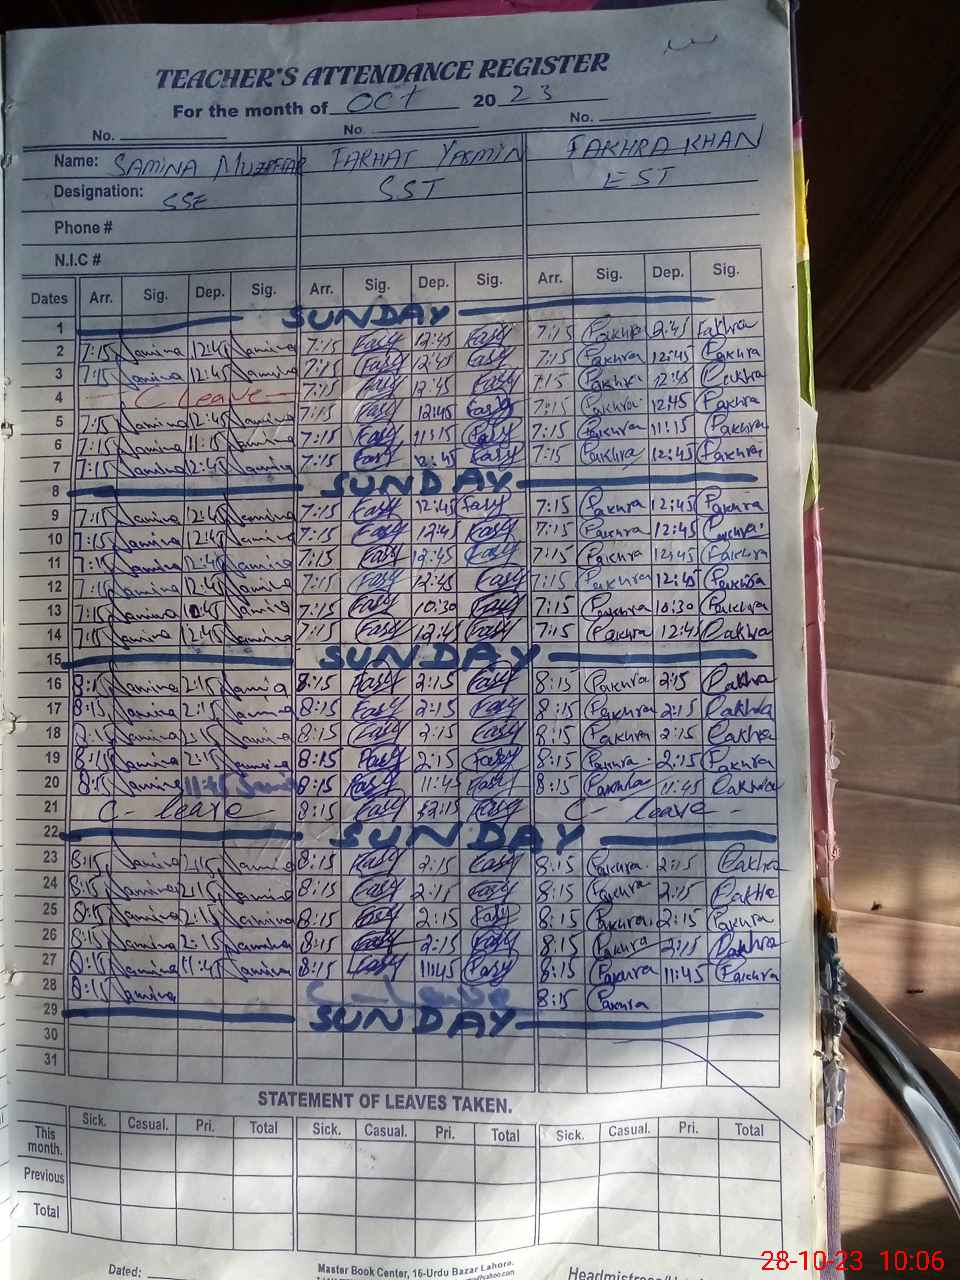 TEACHER'S ATTENDANCE REGISTER
For the month of OCT 2023
No. No. No.
Name: SAMINA MUZAFFAR FARHAT YASMIN FAKHRA KHAN
Designation: SSE SST EST
Phone #
N.I.C #
Dates Arr. Sig. Dep. Sig. Arr. Sig. Dep. Sig. Arr. Sig. Dep. Sig.
1 SUNDAY
2 7:15 Samina 12:45 Samina 7:15 Easy 12:45 Easy 7:15 Fakhra 12:45 Fakhra
3 7:15 Samina 12:45 Samina 7:15 Easy 12:45 Easy 7:15 Fakhra 12:45 Fakhra
4 C leave 7:15 Easy 12:45 Easy 7:15 Fakhra 12:45 Fakhra
5 7:15 Samina 12:45 Samina 7:15 Easy 12:45 Easy 7:15 Fakhra 12:45 Fakhra
6 7:15 Samina 11:15 Samina 7:15 Easy 11:15 Easy 7:15 Fakhra 11:15 Fakhra
7 7:15 Samina 12:45 Samina 7:15 Easy 12:45 Easy 7:15 Fakhra 12:45 Fakhra
8 SUNDAY
9 7:15 Samina 12:45 Samina 7:15 Easy 12:45 Easy 7:15 Fakhra 12:45 Fakhra
10 7:15 Samina 12:45 Samina 7:15 Easy 12:4 Easy 7:15 Fakhra 12:45 Fakhra
11 7:15 Samina 12:45 Samina 7:15 Easy 12:45 Easy 7:15 Fakhra 12:45 Fakhra
12 7:15 Samina 12:45 Samina 7:15 Easy 12:45 Easy 7:15 Fakhra 12:45 Fakhra
13 7:15 Samina Samina 7:15 Easy 10:30 Easy 7:15 Fakhra 10:30 Fakhra
14 7:15 Samina 12:45 Samina 7:15 Easy 12:45 Easy 7:15 Fakhra 12:45 Fakhra
15 SUNDAY
16 8:15 Samina 2:15 Samina 8:15 Easy 2:15 Easy 8:15 Fakhra 2:15 Fakhra
17 8:15 Samina 2:15 Samina 8:15 Easy 2:15 Easy 8:15 Fakhra 2:15 Fakhra
18 8:15 Samina 2:15 Samina 8:15 Easy 2:15 Easy 8:15 Fakhra 2:15 Fakhra
19 8:15 Samina 2:15 Samina 8:15 Easy 2:15 Easy 8:15 Fakhra 2:15 Fakhra
20 8:15 Samina 11:45 Samina 8:15 Easy 11:45 Easy 8:15 Fakhra 11:45 Fakhra
21 C- leave - 8:15 Easy 2:15 Easy C- leave -
22 SUNDAY
23 8:15 Samina 2:15 Samina 8:15 Easy 2:15 Easy 8:15 Fakhra 2:15 Fakhra
24 8:15 Samina 2:15 Samina 8:15 Easy 2:15 Easy 8:15 Fakhra 2:15 Fakhra
25 8:15 Samina 2:15 Samina 8:15 Easy 2:15 Easy 8:15 Fakhra 2:15 Fakhra
26 8:15 Samina 2:15 Samina 8:15 Easy 2:15 Easy 8:15 Fakhra 2:15 Fakhra
27 8:15 Samina 11:45 Samina 8:15 Easy 11:45 Easy 8:15 Fakhra 11:45 Fakhra
28 8:15 Samina C-leave 8:15 Fakhra
29 SUNDAY
30
31
STATEMENT OF LEAVES TAKEN.
Sick. Casual. Pri. Total Sick. Casual. Pri. Total Sick. Casual. Pri. Total
This month.
Previous
Total
Dated:
Master Book Center, 16-Urdu Bazar Lahore.
28-10-23 10:06